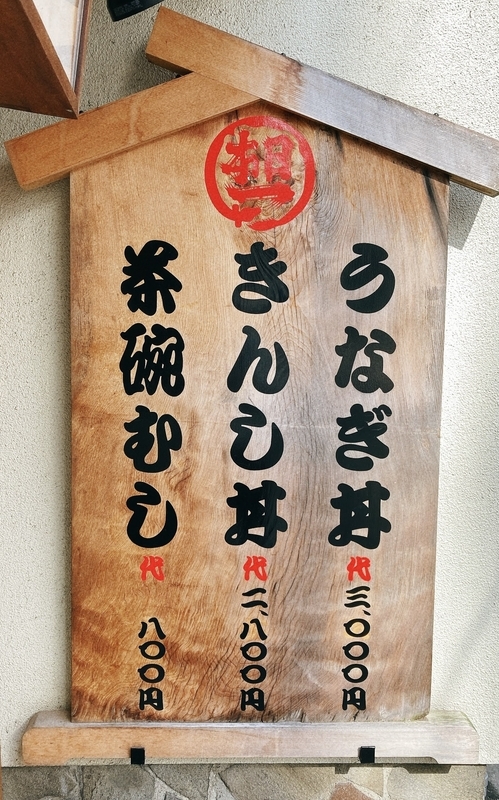 うなぎ丼 代 三、〇〇〇円
きんし丼 代 二、八〇〇円
茶碗むし 代 八〇〇円